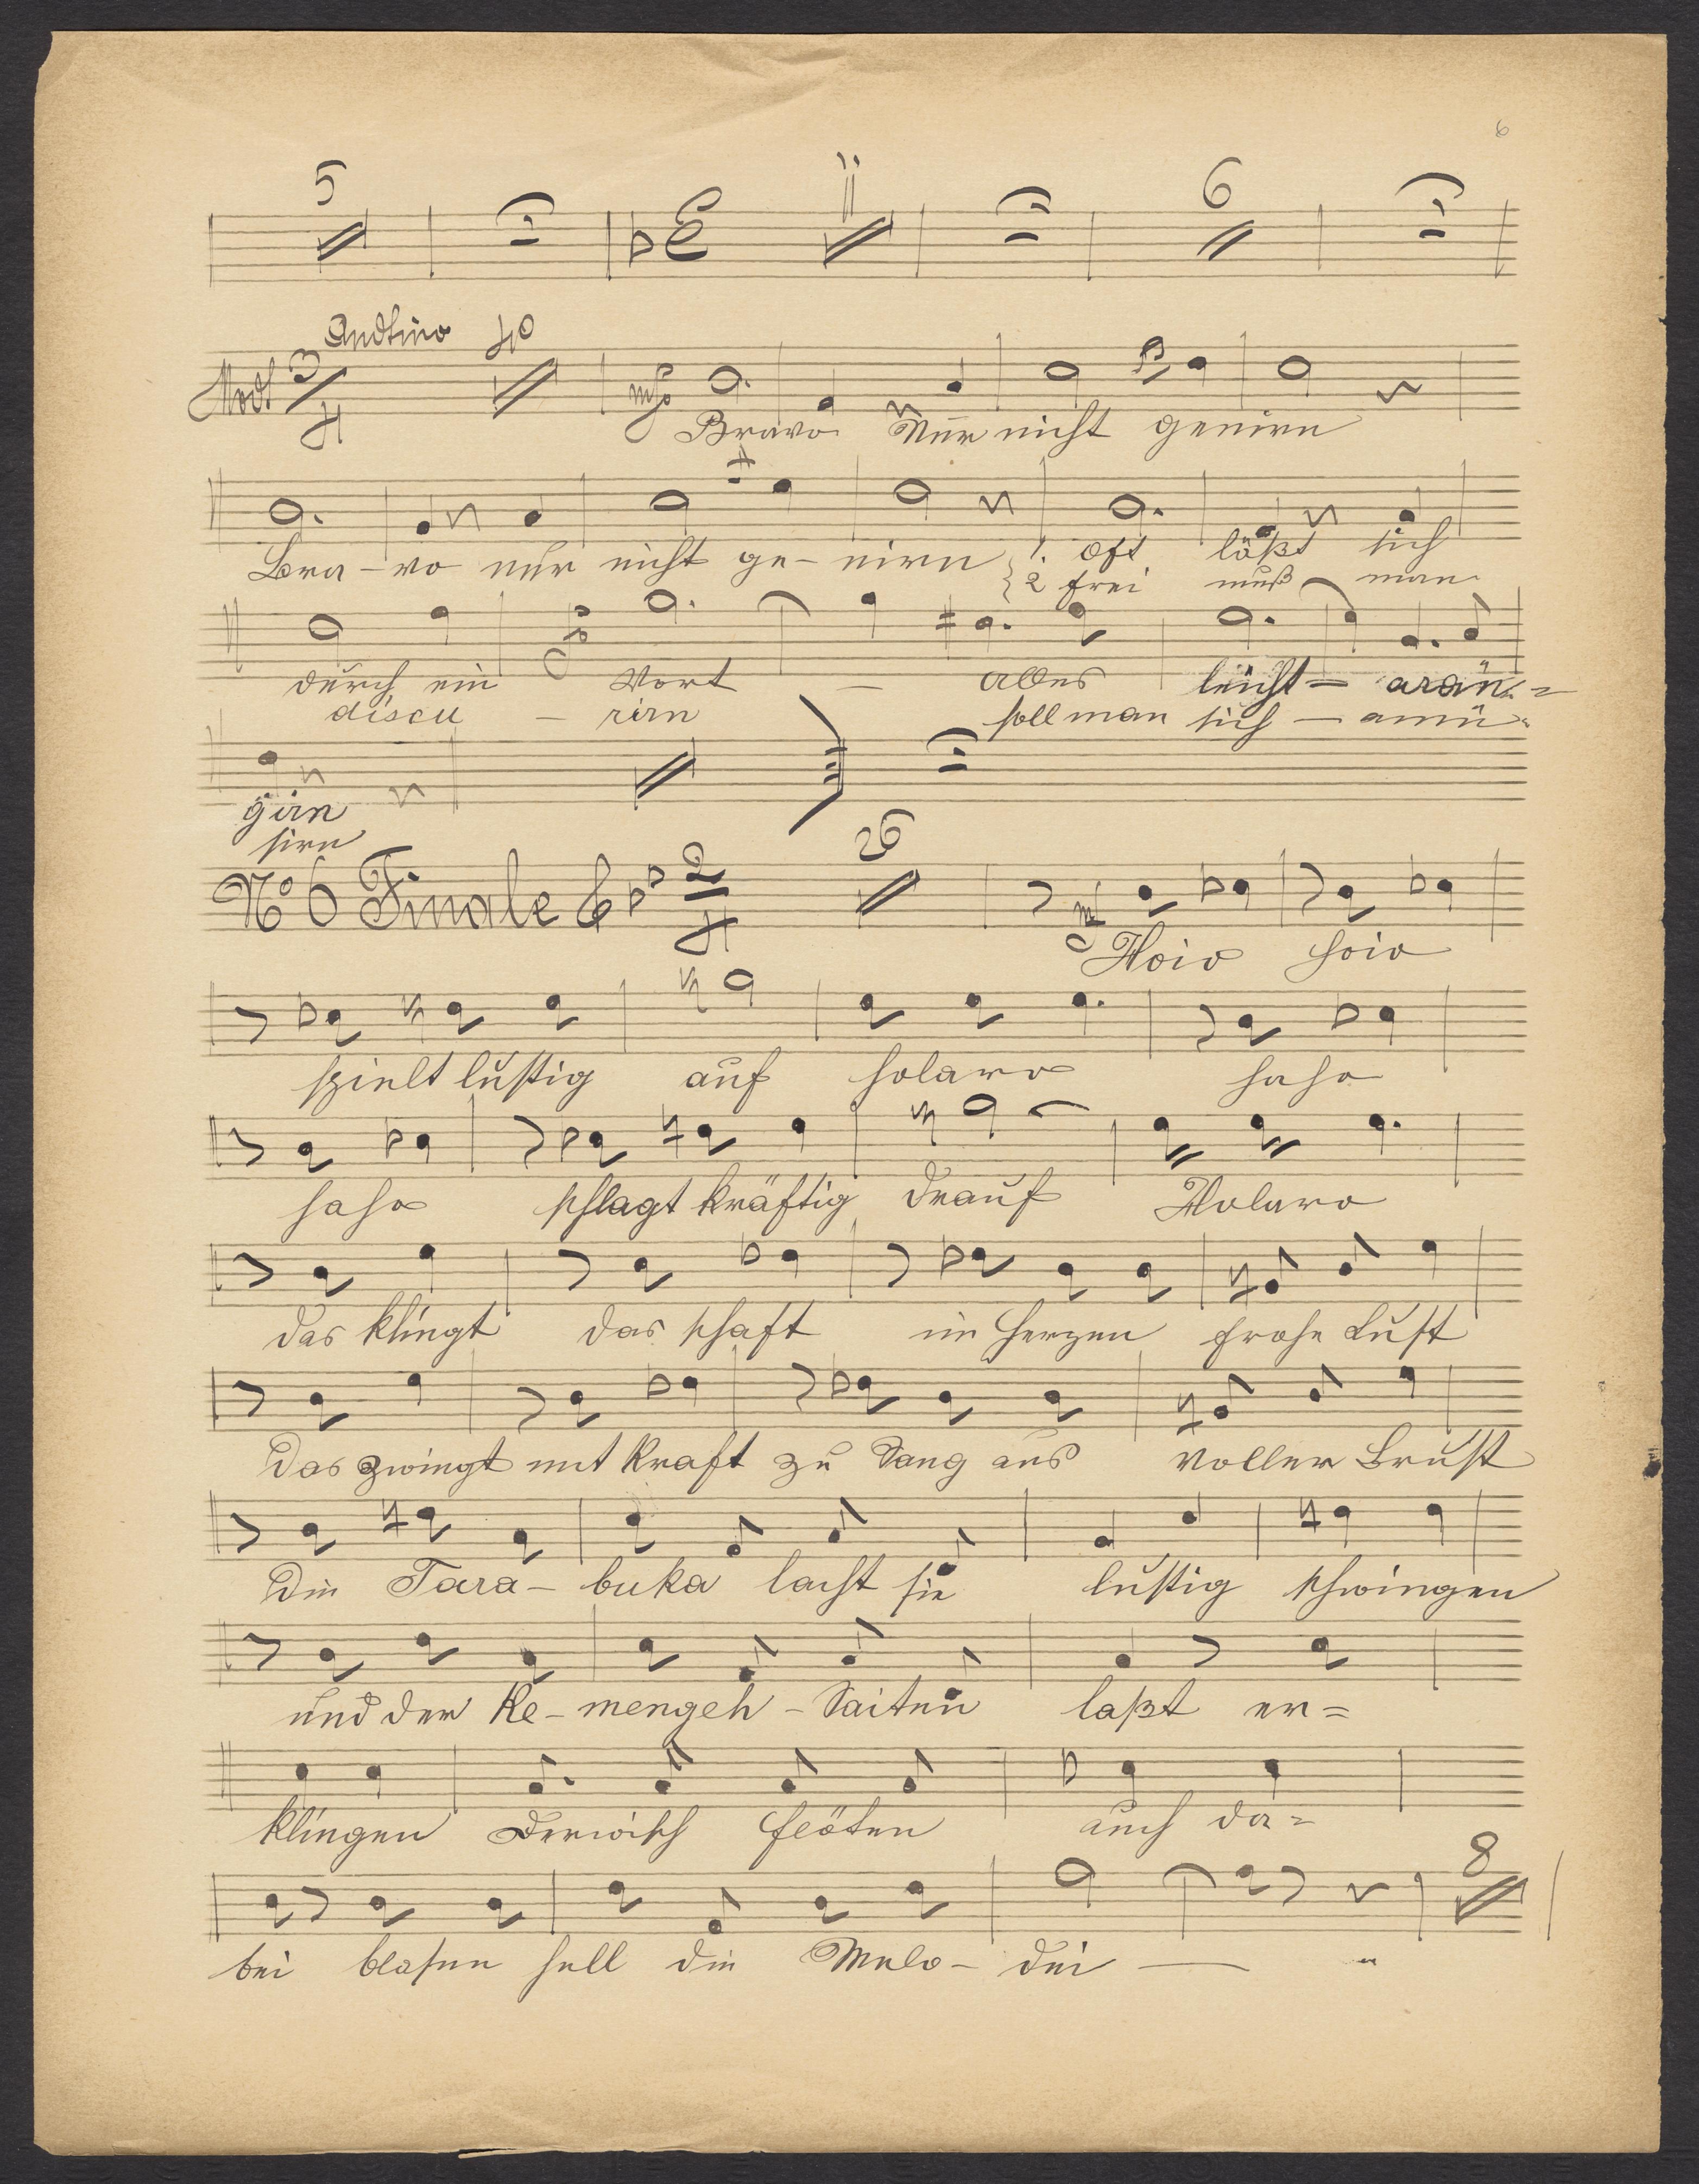 6
5 11 6
Modt 3/4 Andtino 40 mf
Bravo Nur nicht genirn
Bra - vo nur nicht ge - nirn 1. Oft läßt sich
2 frei muß man
durch ein Wort — alles leicht = arän =
discu - rirn soll man sich — amü =
girn
sirn
No 6 Finale 2/4 26 mf
Hoio hoio
spielt lustig auf holaro haho
haho schlagt kräftig drauf Holaro
das klingt das schaft im Herzen frohe Lust
Das zwingt mit Kraft zu Sang aus voller Brust
Die Tara - buka lasst sie lustig schwingen
und der Ke - mengeh - Saiten laßt er =
klingen Derwisch flöten auch da =
8
bei blasen hell die Melo - dei —